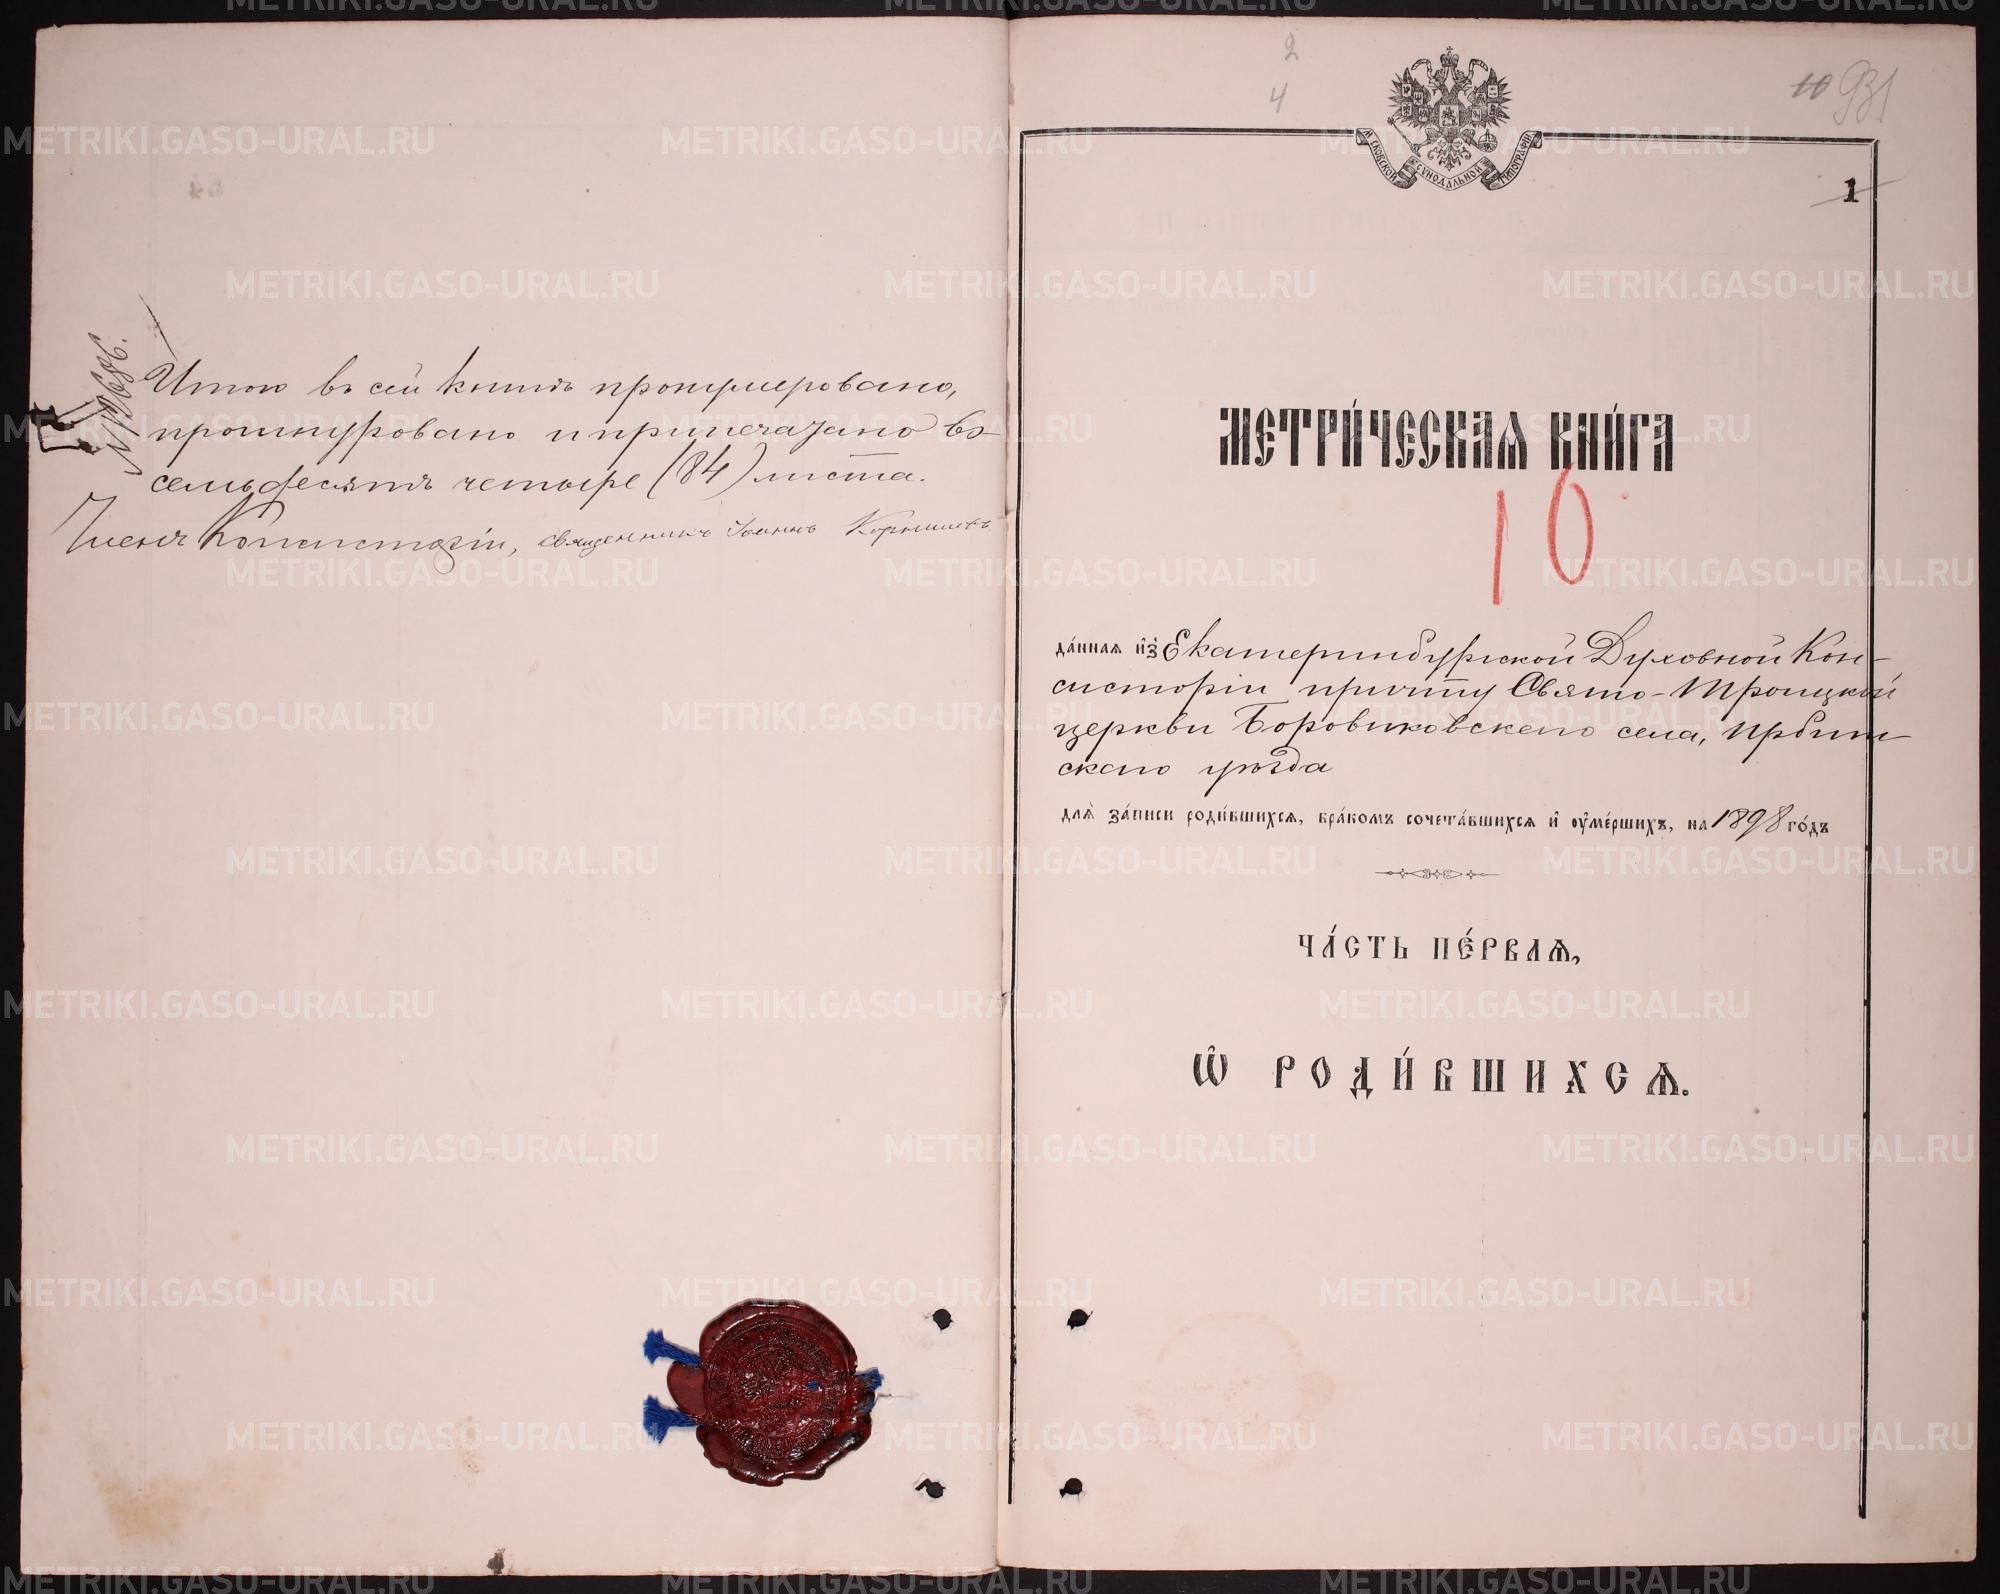 №13686.
Итого въ сей книгѣ пронумеровано,
прошнуровано и припечатано во-
семьдесятъ четыре (84) листа.
Членъ Консисторіи, священникъ Іоаннъ
2
4
10 931
МОСКОВСКОЙ СѴНОДАЛЬНОЙ ТИПОГРАФІИ
1
МЕТРИ́ЧЕСКАѦ КНИ́ГА
10
да́ннаѧ и҆з̾ Екатеринбургской Духовной Кон-
систоріи причту Свято-Троицкой
церкви Боровиковскаго села, Ирбит-
скаго уѣзда
длѧ̀ за́писи роди́вшихсѧ, бра́комъ сочета́вшихсѧ и҆ ᲂу҆ме́ршихъ, на 1898 го́дъ
ЧА́СТЬ ПЕ́РВАѦ,
Ѽ РОДИ́ВШИХСѦ.
METRIKI.GASO-URAL.RU